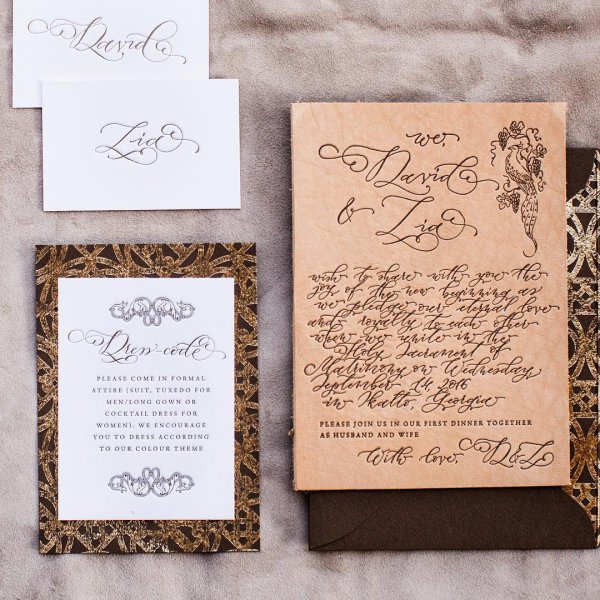 David
Zia
Dress-code
PLEASE COME IN FORMAL
ATTIRE (SUIT, TUXEDO FOR
MEN/LONG GOWN OR
COCKTAIL DRESS FOR
WOMEN). WE ENCOURAGE
YOU TO DRESS ACCORDING
TO OUR COLOUR THEME
we,
David
& Zia
wish to share with you the
joy of the new beginning as
we pledge our eternal love
and royalty to each other
when we unite in the
Holy Sacrament of
Matrimony on Wednesday
September 14, 2016
in Ikalto, Georgia
PLEASE JOIN US IN OUR FIRST DINNER TOGETHER
AS HUSBAND AND WIFE
With love, D&Z